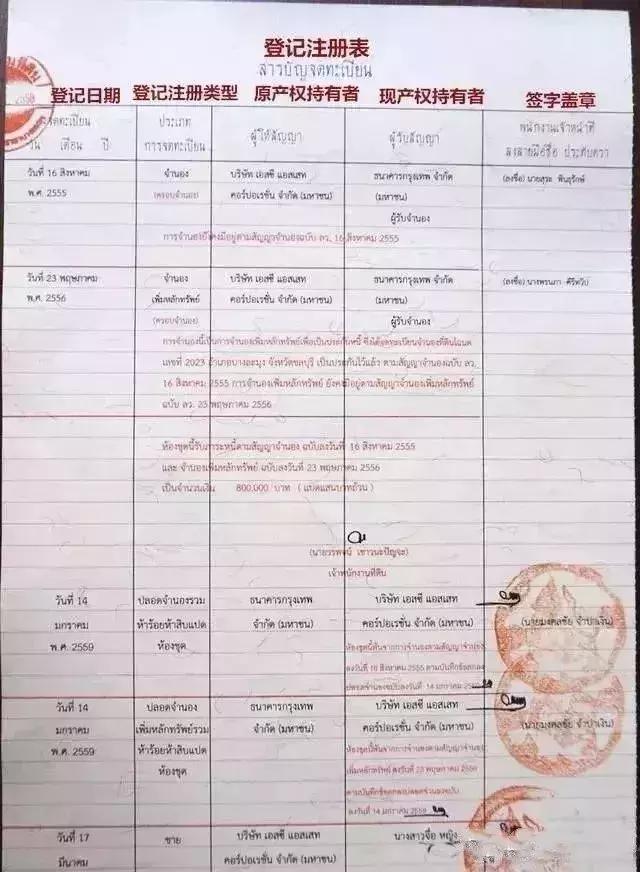 登记注册表
สารบัญจดทะเบียน
登记日期 登记注册类型 原产权持有者 现产权持有者 签字盖章
จดทะเบียน ประเภท ผู้ให้สัญญา ผู้รับสัญญา พนักงานเจ้าหน้าที่
วัน เดือน ปี การจดทะเบียน ลงลายมือชื่อ ประทับตรา
วันที่ 16 สิงหาคม จำนอง บริษัท เอสซี แอสเสท ธนาคารกรุงเทพ จำกัด (ลงชื่อ) นายสุระ
พ.ศ. 2555 (ครอบจำนอง) คอร์ปอเรชั่น จำกัด (มหาชน) (มหาชน)
ผู้รับจำนอง
การจำนองยังคงมีอยู่ตามสัญญาจำนองฉบับ ลว. 16 สิงหาคม 2555
วันที่ 23 พฤษภาคม จำนอง บริษัท เอสซี แอสเสท ธนาคารกรุงเทพ จำกัด (ลงชื่อ) นางพรนภา คีรีทวีป
พ.ศ. 2556 เพิ่มหลักทรัพย์ คอร์ปอเรชั่น จำกัด (มหาชน) (มหาชน)
(ครอบจำนอง) ผู้รับจำนอง
การจำนองนี้เป็นการจำนองเพิ่มหลักทรัพย์เพื่อเป็นประกันหนี้ ซึ่งได้จดทะเบียนจำนองที่ดินโฉนด
เลขที่ 2023 อำเภอบางละมุง จังหวัดชลบุรี เป็นประกันไว้แล้ว ตามสัญญาจำนองฉบับ ลว.
16 สิงหาคม 2555 การจำนองเพิ่มหลักทรัพย์ ยังคงมีอยู่ตามสัญญาจำนองเพิ่มหลักทรัพย์
ฉบับ ลว. 23 พฤษภาคม 2556
ห้องชุดนี้รับภาระหนี้ตามสัญญาจำนอง ฉบับลงวันที่ 16 สิงหาคม 2555
และ จำนองเพิ่มหลักทรัพย์ ฉบับลงวันที่ 23 พฤษภาคม 2556
เป็นจำนวนเงิน 800,000 บาท (แปดแสนบาทถ้วน)
(นายวรพจน์ เชาวนะปัญจะ)
เจ้าพนักงานที่ดิน
วันที่ 14 ปลอดจำนองรวม ธนาคารกรุงเทพ บริษัท เอสซี แอสเสท
มกราคม ห้าร้อยห้าสิบแปด จำกัด (มหาชน) คอร์ปอเรชั่น จำกัด (มหาชน) (นายมงคลชัย จำปาเงิน)
พ.ศ. 2559 ห้องชุด ห้องชุดนี้พ้นจากการจำนองตามสัญญาจำนอง
ลงวันที่ 16 สิงหาคม 2555 ตามบันทึกข้อตกลง
ปลอดจำนองฉบับลงวันที่ 14 มกราคม 2559
วันที่ 14 ปลอดจำนอง ธนาคารกรุงเทพ บริษัท เอสซี แอสเสท
มกราคม เพิ่มหลักทรัพย์รวม จำกัด (มหาชน) คอร์ปอเรชั่น จำกัด (มหาชน) (นายมงคลชัย จำปาเงิน)
พ.ศ. 2559 ห้าร้อยห้าสิบแปด ห้องชุดนี้พ้นจากการจำนองตามสัญญาจำนอง
ห้องชุด เพิ่มหลักทรัพย์ ลงวันที่ 23 พฤษภาคม 2556
ตามบันทึกข้อตกลงปลอดจำนองฉบับ
ลงวันที่ 14 มกราคม 2559
วันที่ 17 ขาย บริษัท เอสซี แอสเสท นางสาวจื่อ หญิง
มีนาคม คอร์ปอเรชั่น จำกัด (มหาชน)